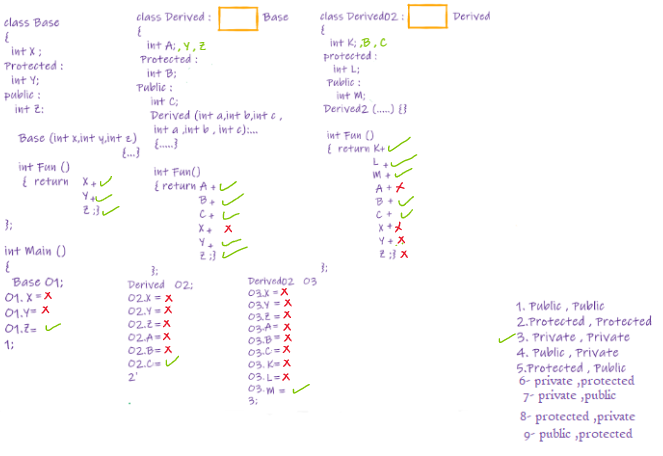 class Base
{
int X ;
Protected :
int Y;
public :
int Z;
Base (int x,int y,int z)
{...}
int Fun ()
{ return X +
Y +
Z ;}
};
int Main ()
{
Base O1;
O1. X = X
O1.Y= X
O1.Z=
1;
class Derived : Base
{
int A; , Y , Z
Protected :
int B;
Public :
int C;
Derived (int a,int b,int c ,
int a ,int b , int c):...
{.....}
int Fun()
{ return A +
B +
C +
X + X
Y +
Z ;}
};
Derived O2;
O2.X = X
O2.Y = X
O2.Z = X
O2.A= X
O2.B= X
O2.C=
2'
.
class Derived02 : Derived
{
int K; ,B , C
protected :
int L;
Public :
int M;
Derived2 (.....) {}
int Fun ()
{ return K+
L +
M +
A + X
B +
C +
X + X
Y + X
Z ;} X
};
Derived02 O3
O3.X = X
O3.Y = X
O3.Z = X
O3.A= X
O3.B= X
O3.C= X
O3. K= X
O3. L= X
O3. M =
3;
1. Public , Public
2.Protected , Protected
3. Private , Private
4. Public , Private
5.Protected , Public
6- private ,protected
7- private ,public
8- protected ,private
9- public ,protected